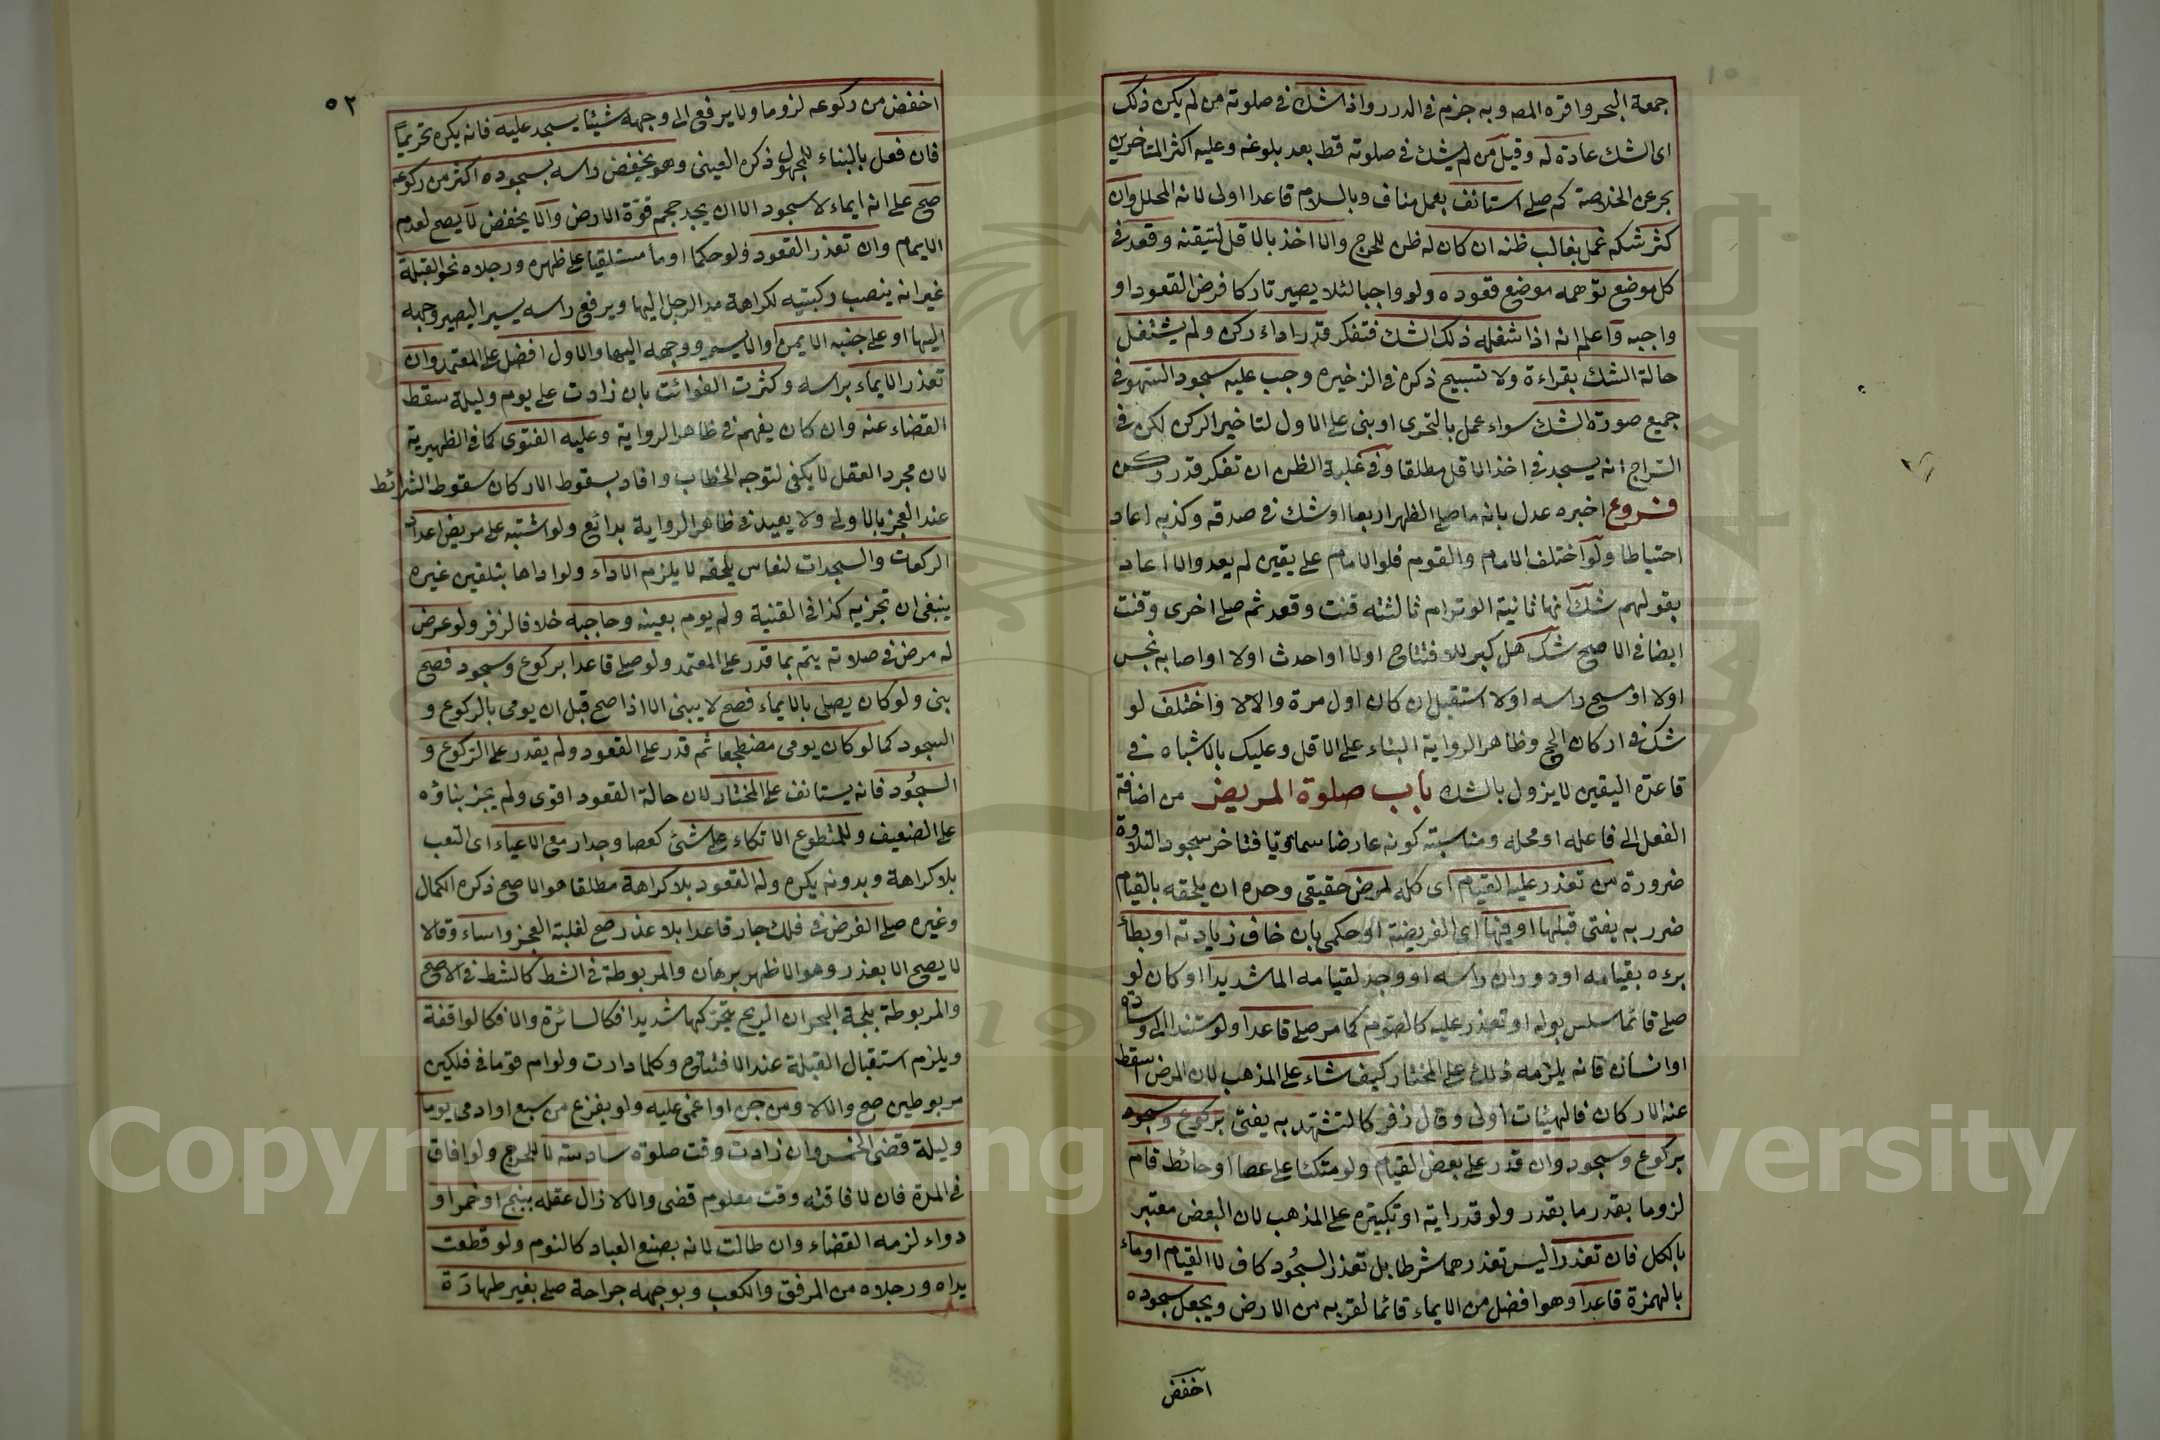 جمعة البحر واقره المصه وبه جزم في الدرر واذا شك في صلوته من لم يكن ذلك
اى الشك عادة له وقيل من لم يشك في صلوته قط بعد بلوغه وعليه اكثر المتاخرين
بحر عن الخلاصة كم صلى استانف بعمل مناف وبالسلام قاعدا اولى لانه المحلل وان
كثر شكه عمل بغالب ظنه ان كان له ظن للحرج والا اخذ بالاقل لتيقنه وقعد في
كل موضع توهمه موضع قعوده ولو واجبا لئلا يصير تاركا فرض القعود او
واجبه واعلم انه اذا شغله ذلك الشك فتفكر قدر اداء ركن ولم يشتغل
حالة الشك بقراءة ولا تسبيح ذكره في الذخيره وجب عليه سجود السهو في
جميع صورة الشك سواء عمل بالتحرى او بنى على الاول لتاخير الركن لكن في
السراج انه يسجد في اخذ الاقل مطلقا وفي غلبة الظن ان تفكر قدر ركن
فروع اخبره عدل بانه ما صلى الظهر اربعا او شك في صدقه وكذبه اعاد
احتياطا ولو اختلف الامام والقوم فلو الامام على يقين لم يعد والا اعاد
بقولهم شك انها ثانية الوتر ام ثالثته قنت وقعد ثم صلى اخرى وقنت
ايضا في الاصح شك هل كبر للافتتاح اولا او احدث اولا او اصابه نجس
اولا او مسح راسه اولا استقبل ان كان اول مرة والا لا واختلف لو
شك في اركان الحج وظاهر الرواية البناء على الاقل وعليك بالاشباه في
قاعدة اليقين لا يزول بالشك باب صلوة المريض من اضافة
الفعل الى فاعله او محله ومناسبته كونه عارضا سماويا فتاخر سجود التلاوة
ضرورة من تعذر عليه القيام اى كله لمرض حقيقى وحده ان يلحقه بالقيام
ضرر به يفتى قبلها او فيها اى الفريضة او حكمى بان خاف زيادته او بطأ
برءه بقيامه او دوران راسه او وجد لقيامه الما شديدا او كان لو
صلى قائما سلس بوله او تعذر عليه كالصوم كما مر صلى قاعدا ولو مستندا الى وسادة
او انسان فانه يلزمه ذلك على المختار كيف شاء على المذهب لان المرض اسقط
عنه الاركان فالهيئات اولى وقال زفر كالتشهد به يفتى بركوع وسجود
بركوع وسجود وان قدر على بعض القيام ولو متكئا على عصا او حائط قام
لزوما بقدر ما بقدر ولو قدر اية او تكبيره على المذهب لان البعض معتبر
بالكل فان تعذرا ليس تعذرهما شرطا بل تعذر السجود كاف لا القيام اوماء
بالهمزة قاعدا وهو افضل من الايماء قائما لقربه من الارض ويجعل سجوده
اخفض
٥٢
اخفض من ركوعه لزوما ولا يرفع الى وجهه شيئا يسجد عليه فانه يكره تحريما
فان فعل بالبناء للمجهول ذكره العينى وهو يخفض راسه بسجوده اكثر من ركوعه
صح على انه ايماء لا سجود الا ان يجد حجم قوة الارض والا يخفض لا يصح لعدم
الايمام وان تعذر القعود ولو حكما اومأ مستلقيا على ظهره ورجلاه نحو القبلة
غير انه ينصب ركبتيه لكراهة مد الرجل اليها ويرفع راسه يسيرا ليصير وجهه
اليها او على جنبه الايمن او الايسر ووجهه اليها والاول افضل على المعتمد وان
تعذر الايماء براسه وكثرت الفوائت بان زادت على يوم وليلة سقط
القضاء عنه وان كان يفهم في ظاهر الرواية وعليه الفتوى كما في الظهيرية
لان مجرد العقل لا يكفى لتوجه الخطاب وافاد بسقوط الاركان سقوط الشرائط
عند العجز بالاولى ولا يعيد في ظاهر الرواية بدائع ولو اشتبه على مريض اعداد
الركعات والسجدات لنعاس يلحقه لا يلزم الاداء ولو اداها بتلقين غيره
ينبغى ان تجزيه كذا في القنية ولم يوم بعينه وحاجبه خلافا لزفر ولو عرض
له مرض في صلاته يتم بما قدر على المعتمد ولو صلى قاعدا بركوع وسجود فصح
بنى ولو كان يصلى بالايماء فصح لا يبنى الا اذا صح قبل ان يومى بالركوع و
السجود كما لو كان يومى مضطجعا ثم قدر على القعود ولم يقدر على الركوع و
السجود فانه يستانف على المختار لان حالة القعود اقوى ولم يجز بناؤه
على الضعيف وللمتطوع الاتكاء على شئ كعصا وجدار مع الاعياء اى التعب
بلا كراهة وبدونه يكره وله القعود بلا كراهة مطلقا هو الاصح ذكره الكمال
وغيره صلى الفرض في فلك جار قاعدا بلا عذر صح لغلبة العجز واساء وقالا
لا يصح الا بعذر وهو الاظهر برهان والمربوطة في الشط كالشط في الاصح
والمربوطة بلجة البحر ان الريح يحركها شديدا فكالسائرة والا فكالواقفة
ويلزم استقبال القبلة عند الافتتاح وكلما دارت ولو ام قوما في فلكين
مربوطين صح والا لا ومن جن او اغمى عليه ولو بفزع من سبع او ادمى يوما
وليلة قضى الخمس وان زادت وقت صلوة سادسة لا للحرج ولو افاق
في المدة فان لافاقته وقت معلوم قضى والا لا زال عقله ببنج او خمر او
دواء لزمه القضاء وان طالت لانه بصنع العباد كالنوم ولو قطعت
يداه ورجلاه من المرفق والكعب وبوجهه جراحة صلى بغير طهارة
Copyright © King Saud University